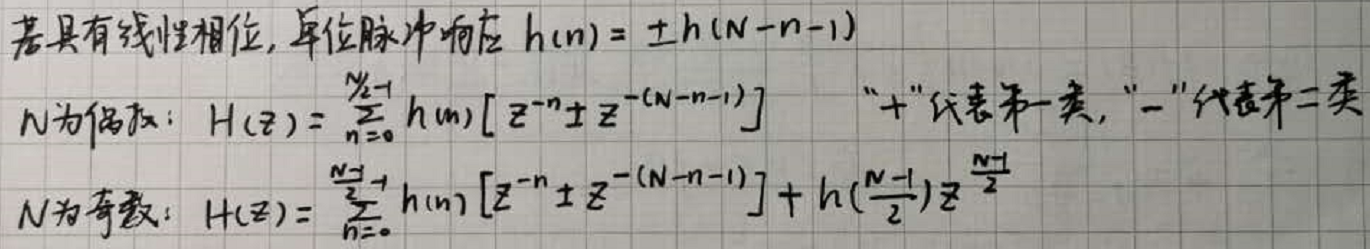 若具有线性相位, 单位脉冲响应 h(n) = ±h(N-n-1)
N为偶数: H(z) = ∑_{n=0}^{N/2-1} h(n) [ z^{-n} ± z^{-(N-n-1)} ] “+”代表第一类, “-”代表第二类
N为奇数: H(z) = ∑_{n=0}^{\frac{N-1}{2}-1} h(n) [ z^{-n} ± z^{-(N-n-1)} ] + h(\frac{N-1}{2}) z^{\frac{N-1}{2}}